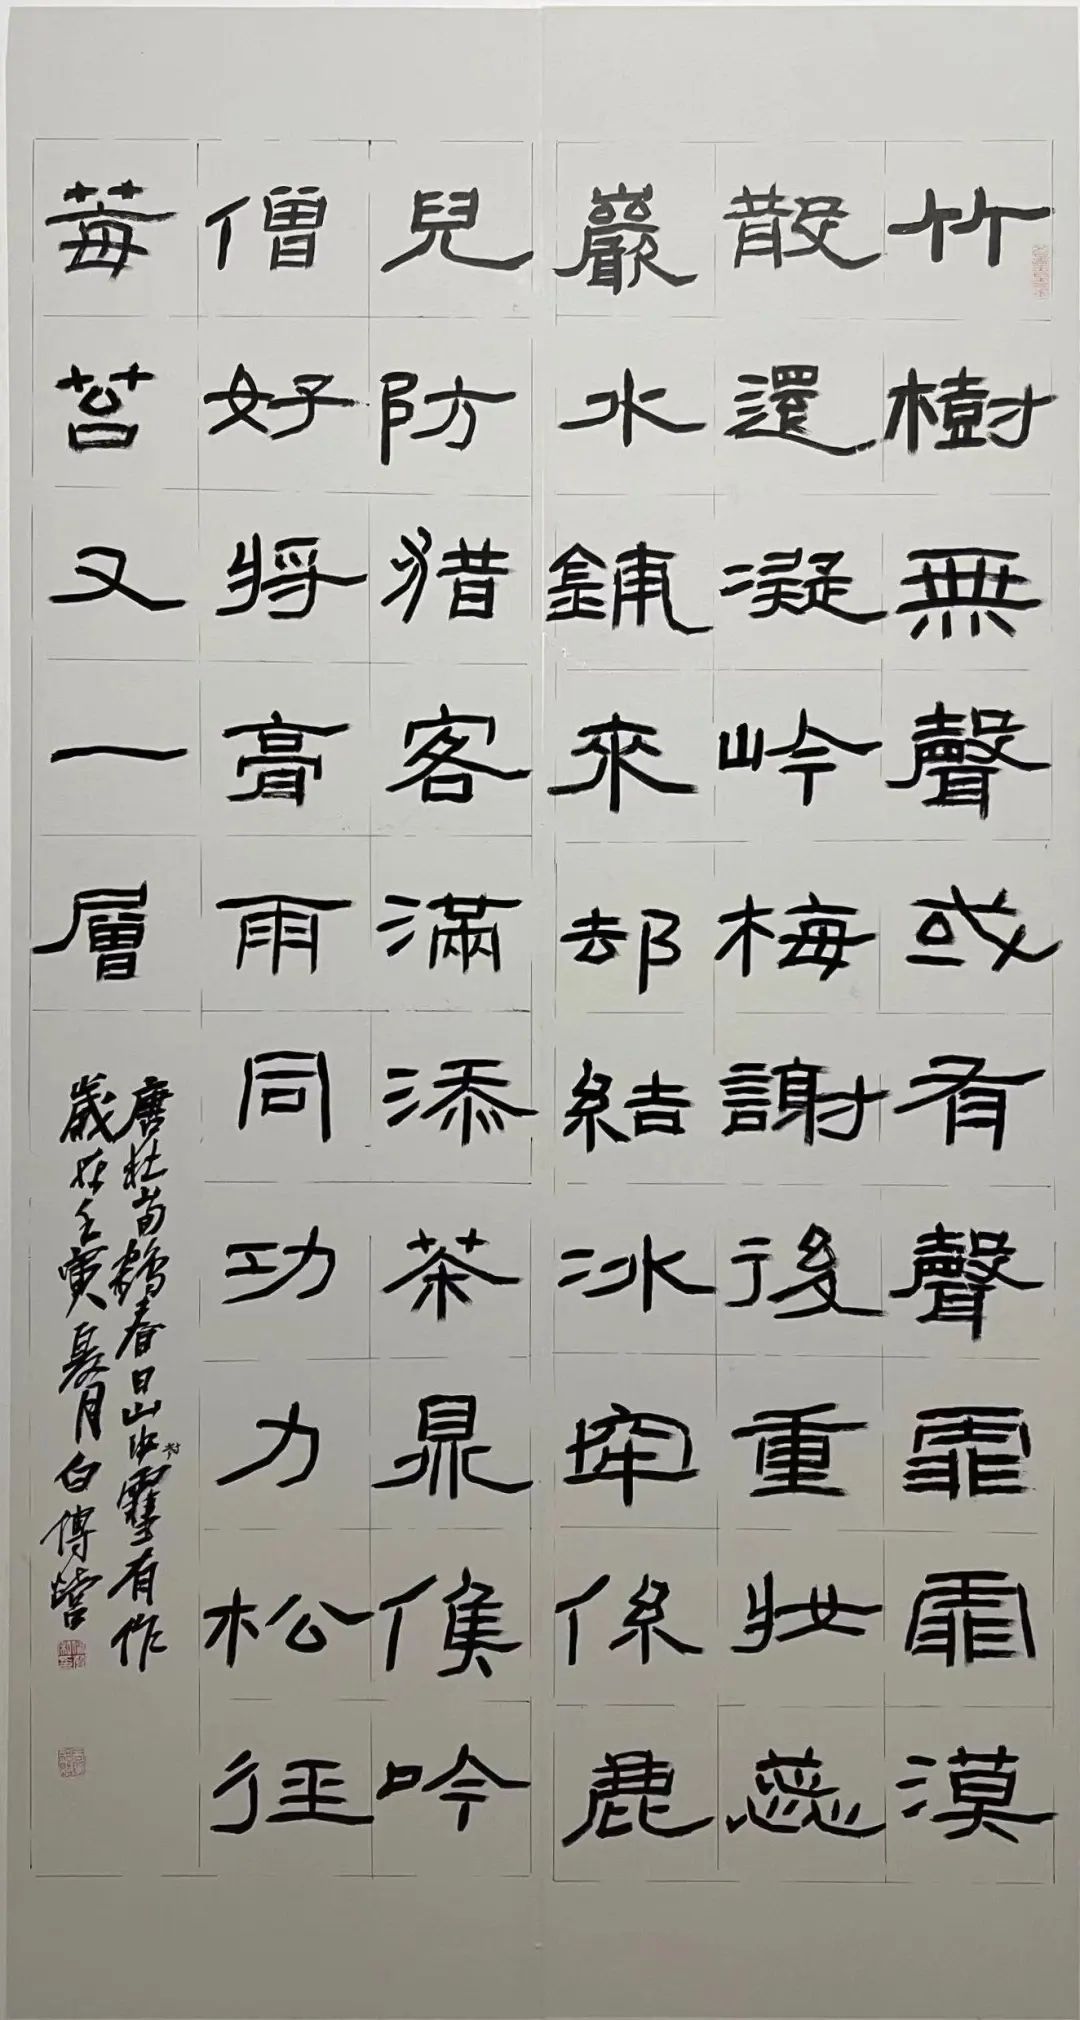 竹樹無聲或有聲霏霏漠
散還凝岭梅謝後重妝蕊
巖水鋪來却結冰牢係鹿
兒防猎客滿添茶鼎候吟
僧好將膏雨同功力松徑
莓苔又一層
唐杜荀鶴春日山中对雪有作
歲在壬寅夏月白